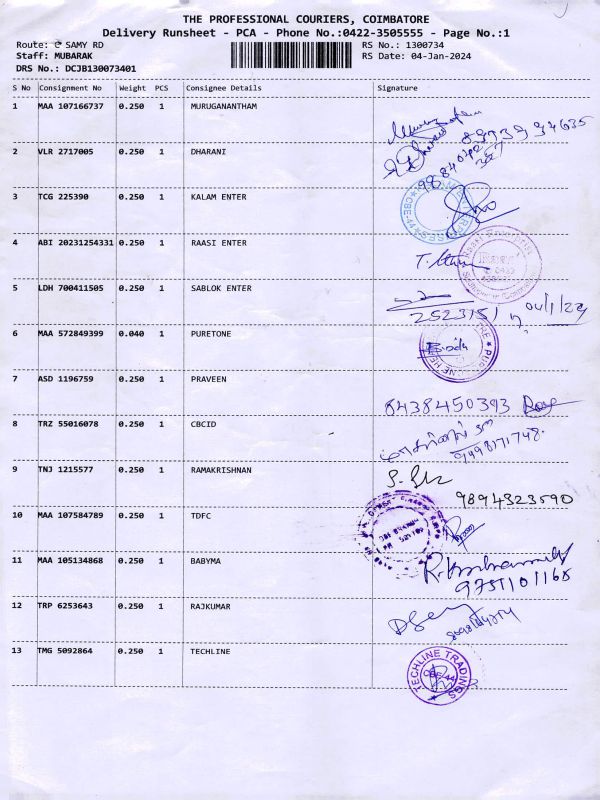 THE PROFESSIONAL COURIERS, COIMBATORE
Delivery Runsheet - PCA - Phone No.:0422-3505555 - Page No.:1
Route: C SAMY RD RS No.: 1300734
Staff: MUBARAK RS Date: 04-Jan-2024
DRS No.: DCJB130073401
S No Consignment No Weight PCS Consignee Details Signature
1 MAA 107166737 0.250 1 MURUGANANTHAM
2 VLR 2717005 0.250 1 DHARANI
3 TCG 225390 0.250 1 KALAM ENTER
4 ABI 20231254331 0.250 1 RAASI ENTER
5 LDH 700411505 0.250 1 SABLOK ENTER
2523151
6 MAA 572849399 0.040 1 PURETONE
7 ASD 1196759 0.250 1 PRAVEEN
8438450393
8 TRZ 55016078 0.250 1 CBCID
9 TNJ 1215577 0.250 1 RAMAKRISHNAN
9894323590
10 MAA 107584789 0.250 1 TDFC
11 MAA 105134868 0.250 1 BABYMA
9751101168
12 TRP 6253643 0.250 1 RAJKUMAR
13 TMG 5092864 0.250 1 TECHLINE
TECHLINE TRADINGS